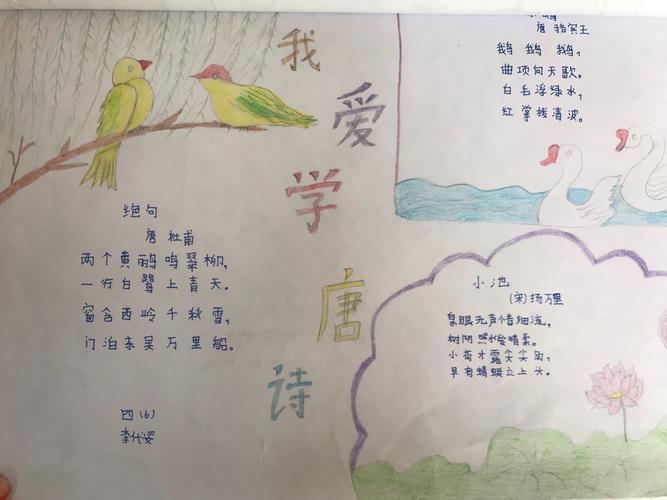 我爱学唐诗
绝句
唐 杜甫
两个黄鹂鸣翠柳，
一行白鹭上青天。
窗含西岭千秋雪，
门泊东吴万里船。
四（6）
李代姿
唐 骆宾王
鹅 鹅 鹅，
曲项向天歌。
白毛浮绿水，
红掌拨清波。
小池
（宋）杨万里
泉眼无声惜细流，
树阴照水爱晴柔。
小荷才露尖尖角，
早有蜻蜓立上头。